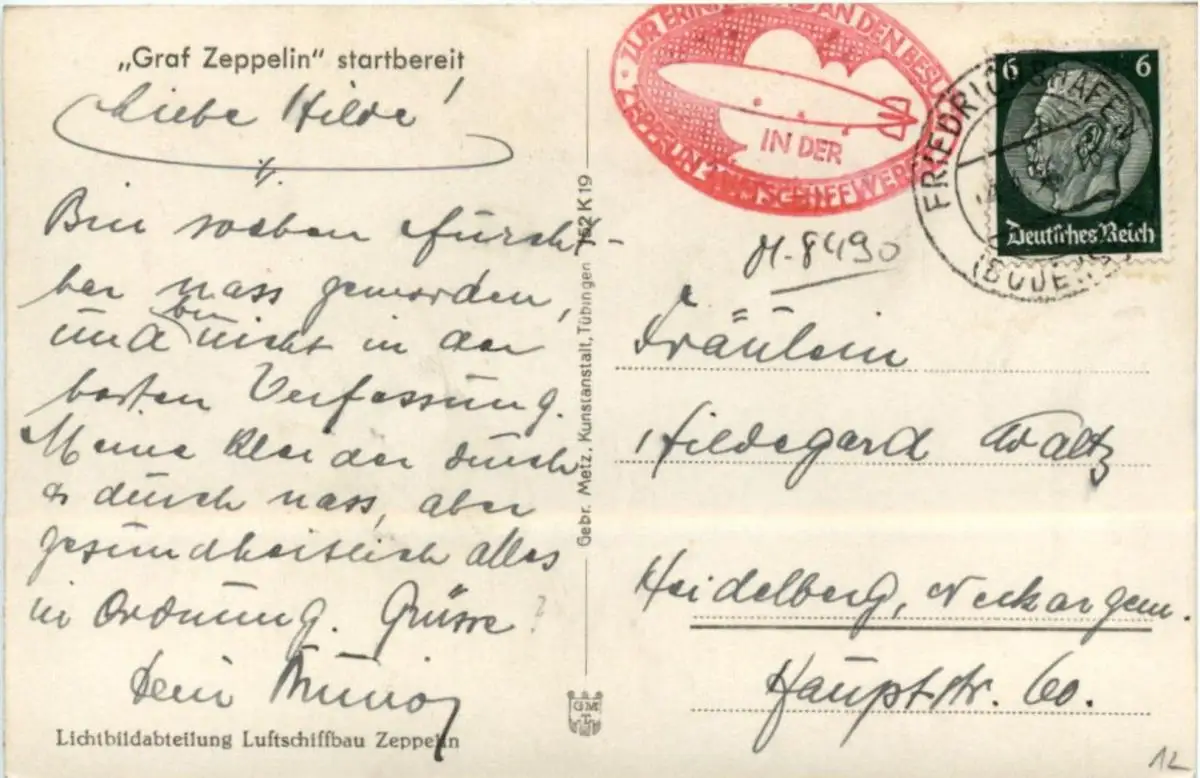 „Graf Zeppelin" startbereit
Liebe Hilde!
Bin soeben furcht-
bar nass geworden,
und bin nicht in der
besten Verfassung.
Meine Kleider durch
& durch nass, aber
gesundheitlich alles
in Ordnung. Grüsse
Dein Bruno
Lichtbildabteilung Luftschiffbau Zeppelin
Gebr. Metz, Kunstanstalt, Tübingen 752 K 19
GMT
ZUR ERINNERUNG AN DEN BESU
IN DER
ZEPPELIN LUFTSCHIFFWER
FRIEDRICHSHAFEN
(BODE
6 6
Deutsches Reich
M-8490
Fräulein
Hildegard Waltz
Heidelberg, Neckargem.
Hauptstr. 60.
12